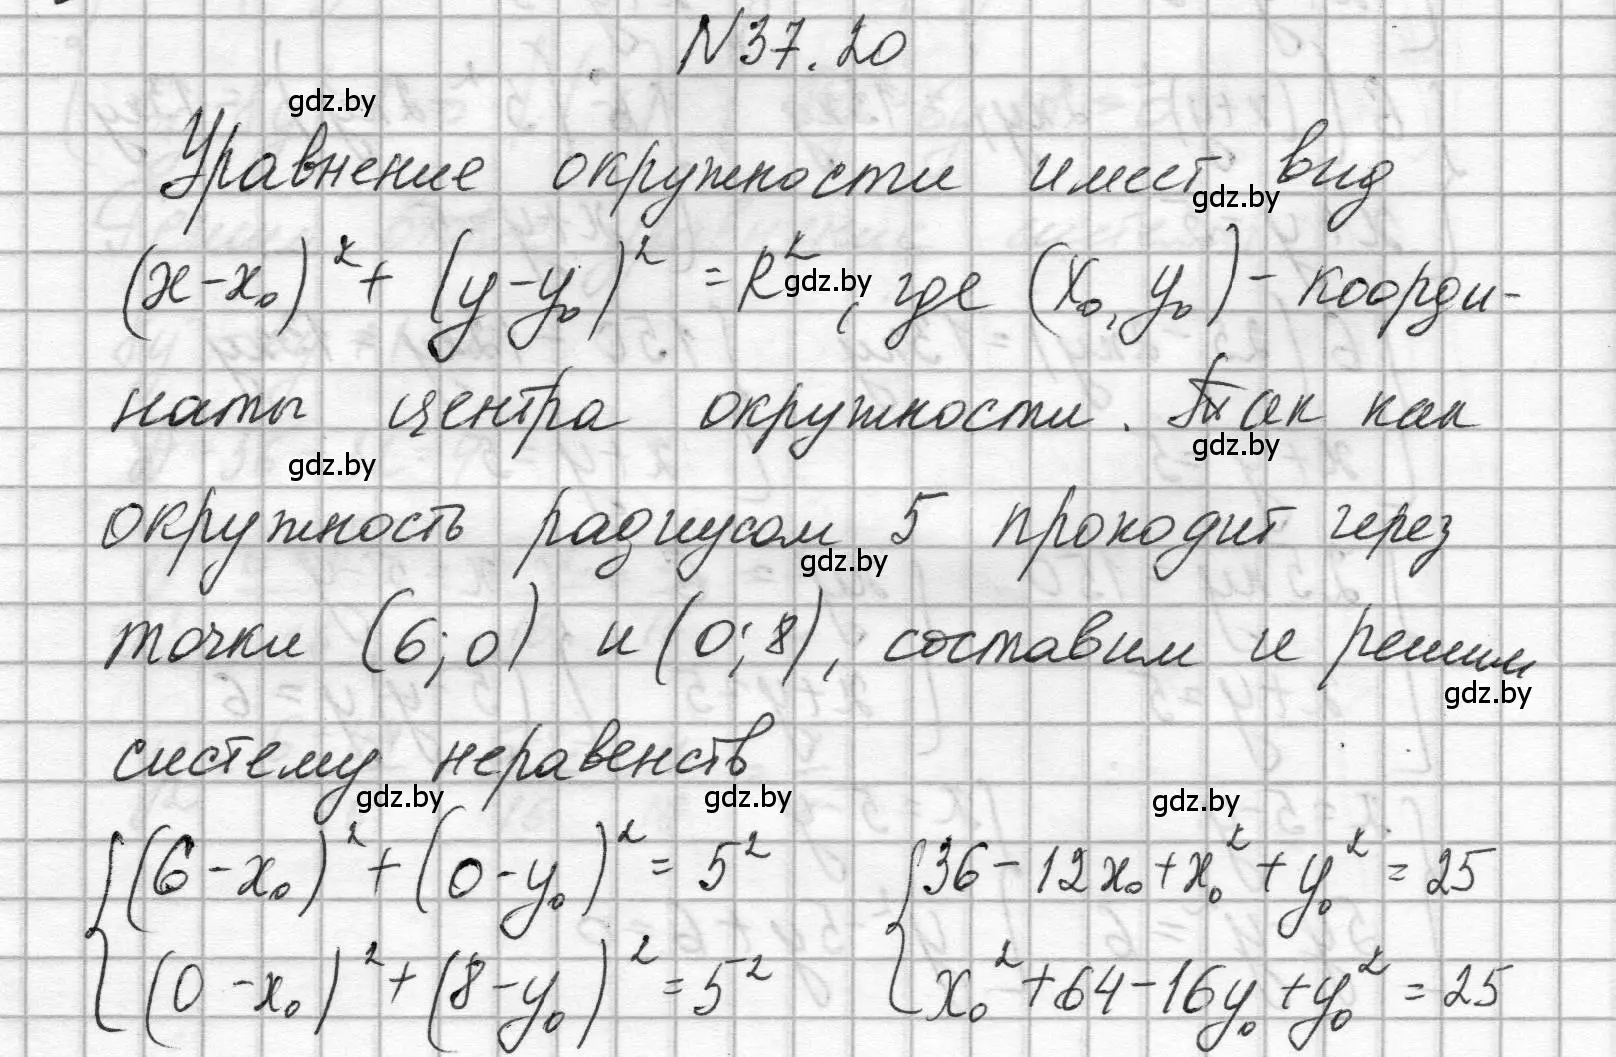 N37.20
gdz.by
Уравнение окружности имеет вид
gdz.by
(x-x₀)² + (y-y₀)² = R², где (x₀, y₀) - коорди-
gdz.by
наты центра окружности. Так как
gdz.by
gdz.by
окружность радиусом 5 проходит через
gdz.by
точки (6; 0) и (0; 8), составим и решим
gdz.by
систему неравенств
gdz.by gdz.by gdz.by
{ (6-x₀)² + (0-y₀)² = 5² { 36-12x₀+x₀²+y₀² = 25
(0-x₀)² + (8-y₀)² = 5² x₀²+64-16y₀+y₀² = 25